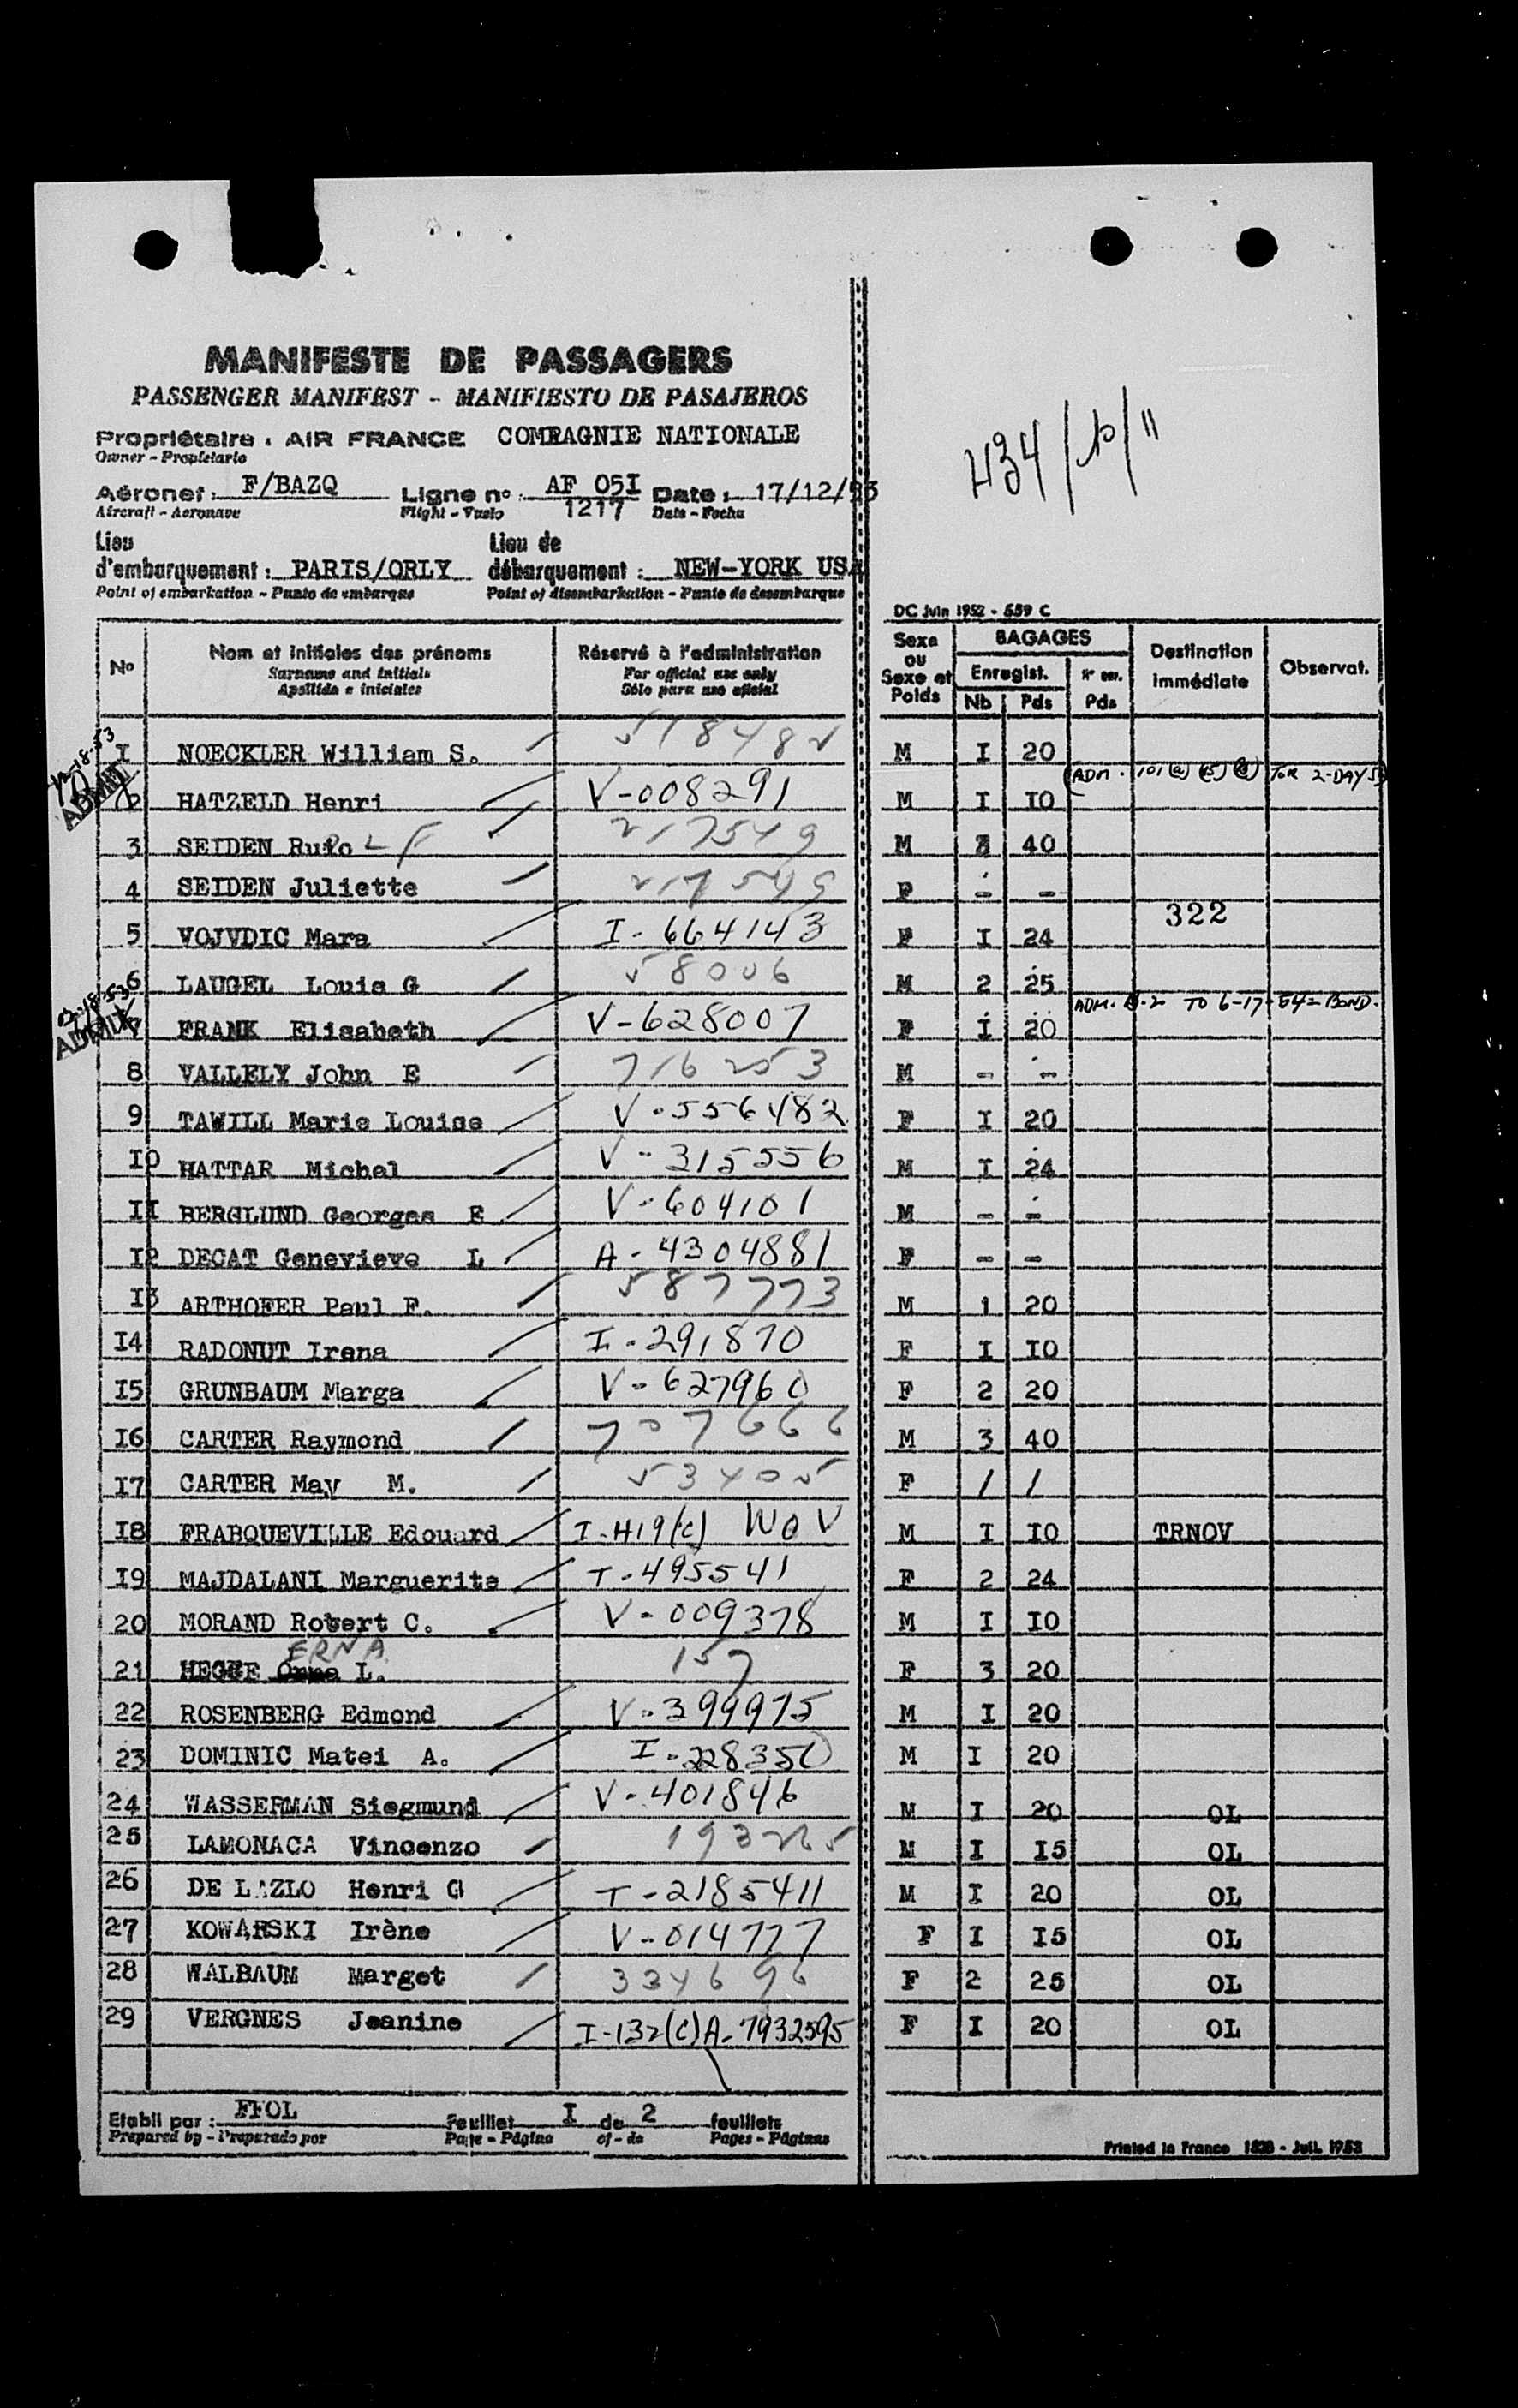 MANIFESTE DE PASSAGERS
PASSENGER MANIFEST - MANIFIESTO DE PASAJEROS
Propriétaire : AIR FRANCE COMPAGNIE NATIONALE
Owner - Propietario
434/
Aéronef : F/BAZQ Ligne n° : AF 05I Date : 17/12/53
Aircraft - Aeronave Flight - Vuelo 1217 Date - Fecha
Lieu Lieu de
d'embarquement : PARIS/ORLY débarquement : NEW-YORK USA
Point of embarkation - Punto de embarque Point of disembarkation - Punto de desembarque
DC Juin 1952 - 559 C
N° Nom et initiales des prénoms Réservé à l'administration Sexe ou Sexe et Poids BAGAGES Destination immédiate Observat.
Surname and initials For official use only Enregist. N° enr.
Apellido e iniciales Sólo para uso oficial Nb Pds Pds
12-18-53
I NOECKLER William S. 518482 M I 20
ADMIT (ADM. 101(a)(15) FOR 2-DAYS)
2 HATZELD Henri V-008291 M I IO
3 SEIDEN Rufo L F 217549 M 40
4 SEIDEN Juliette 217549 F - -
322
5 VOJVDIC Mara I-664143 F I 24
6 LAUGEL Louis G 58006 M 2 25
ADMIT ADM. B-2 TO 6-17-54 = BOND.
7 FRANK Elisabeth V-628007 F I 20
8 VALLELY John E 716253 M - -
9 TAWILL Marie Louise V-556482 F I 20
IO HATTAR Michel V-315556 M I 24
II BERGLUND Georges E V-604101 M - -
I2 DECAT Genevieve L A-4304881 F - -
I3 ARTHOFER Paul F. 587773 M 1 20
I4 RADONUT Irena I-291870 F I IO
I5 GRUNBAUM Marga V-627960 F 2 20
I6 CARTER Raymond 707666 M 3 40
I7 CARTER May M. 53405 F / /
I8 FRABQUEVILLE Edouard I-419(c) WOV M I IO TRNOV
I9 MAJDALANI Marguerite T-495541 F 2 24
20 MORAND Robert C. V-009378 M I IO
ERNA
21 HEGGE L. 157 F 3 20
22 ROSENBERG Edmond V-399975 M I 20
23 DOMINIC Matei A. I-228350 M I 20
24 WASSERMAN Siegmund V-401846 M I 20 OL
25 LAMONACA Vincenzo 193225 M I I5 OL
26 DE LAZLO Henri G T-2185411 M I 20 OL
27 KOWARSKI Irène V-014777 F I I5 OL
28 WALBAUM Marget 334696 F 2 25 OL
29 VERGNES Jeanine I-132(c) A-7932595 F I 20 OL
Etabli par : FFOL Feuillet I de 2 feuillets
Prepared by - Preparado por Page - Página of - de Pages - Páginas
Printed in France 1528 - Juil. 1953